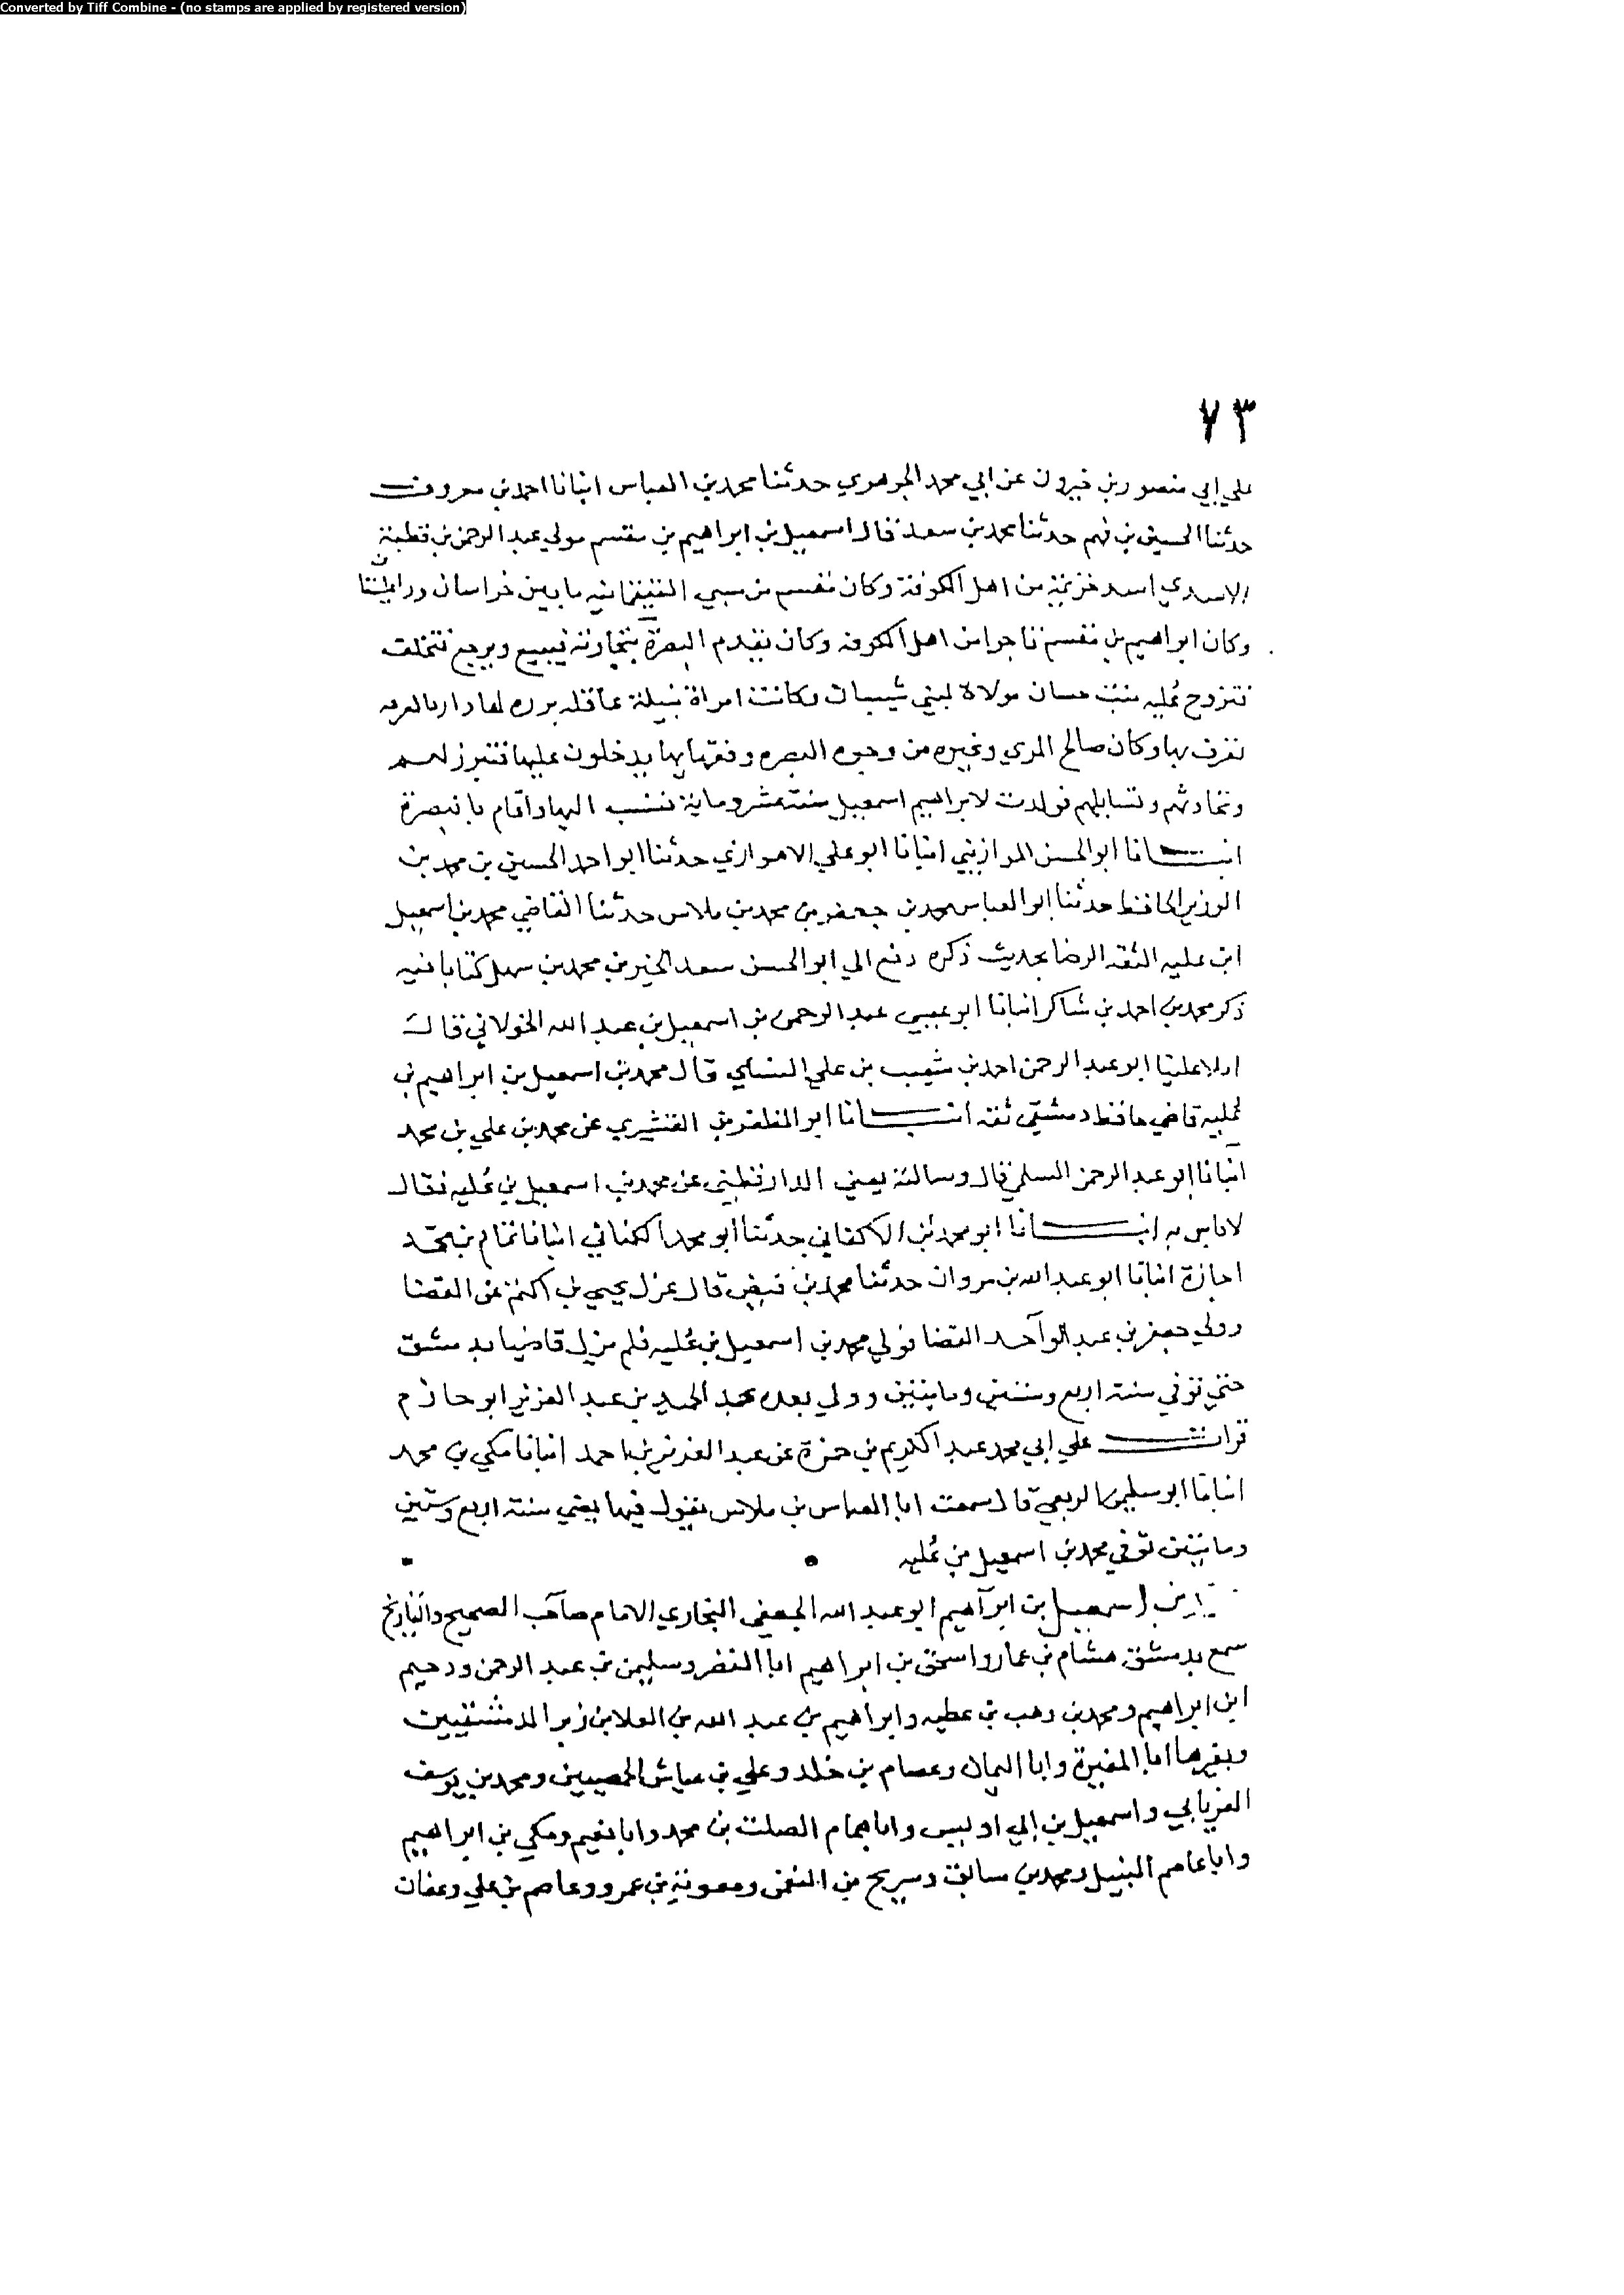 Converted by Tiff Combine - (no stamps are applied by registered version)
٧٣
علي ابي منصور بن خيرون عن ابي محمد الجوهري حدثنا محمد بن العباس انبانا احمد بن معروف
حدثنا الحسين بن فهم حدثنا محمد بن سعد قال اسمعيل بن ابراهيم بن مقسم مولي عبد الرحمن بن قطبة
الاسدي اسد خزيمة من اهل الكوفة وكان مقسم من سبي القيقانيه ما بين خراسان
وكان ابراهيم بن مقسم تاجرا من اهل الكوفه وكان يقدم البصرة بتجارته فيبيع ويرجع فتخلف
فتزوج عُليه بنت حسان مولاة لبني شيبان وكانت امراة نبيلة عاقله برزه لها دار بالعرقه
تعرف بها وكان صالح المري وغيره من وجوه البصره وفقهايها يدخلون عليها فتبرز لهم
وتحادثهم وتسايلهم فولدت لابراهيم اسمعيل سنة عشر وماية فنسب اليها واقام بالبصرة
انبانا ابو الحسن الموازيني انبانا ابو علي الاهوازي حدثنا ابو احمد الحسين بن محمد بن
الوزير الحافظ حدثنا ابو العباس محمد بن جعفر بن محمد بن ملاس حدثنا القاضي محمد بن اسمعيل
ابن عليه الثقه الرضا بحديث ذكره دفع الي ابو الحسن سعد الخير بن محمد بن سهل كتابا فيه
ذكر محمد بن احمد بن شاكر انبانا ابو عيسي عبد الرحمن بن اسمعيل بن عبد الله الخولاني قال
املا علينا ابو عبد الرحمن احمد بن شعيب بن علي النساي قال محمد بن اسمعيل بن ابراهيم بن
عُليه قاضي حافظ دمشقي ثقه انبانا ابو المظفر بن القشيري عن محمد بن علي بن محمد
انبانا ابو عبد الرحمن السلمي قال وسالته يعني الدارقطني عن محمد بن اسمعيل بن عُليه فقال
لا باس به انبانا ابو محمد بن الاكفاني حدثنا ابو محمد الكتاني انبانا تمام بن محمد
اجازة انبانا ابو عبد الله بن مروان حدثنا محمد بن فيض قال عزل يحيي بن اكثم عن القضا
وولي جعفر بن عبد الواحد القضا فولي محمد بن اسمعيل بن عُليه فلم يزل قاضيا بدمشق
حتي توفي سنة اربع وستين ومايتين وولي بعده عبد الحميد بن عبد العزيز ابو حازم
قرات علي ابي محمد عبد الكريم بن حمزة عن عبد العزيز بن احمد انبانا مكي بن محمد
انبانا ابو سليمن الربعي قال سمعت ابا العباس بن ملاس يقول فيها يعني سنة اربع وستين
ومايتين توفي محمد بن اسمعيل بن عُليه
بن اسمعيل بن ابراهيم ابو عبد الله الجعفي البخاري الامام صاحب الصحيح والتاريخ
سمع بدمشق هشام بن عمار واسحق بن ابراهيم ابا النضر وسليمن بن عبد الرحمن ودحيم
ابن ابراهيم ومحمد بن وهب بن عطيه وابراهيم بن عبد الله بن العلا بن زبر الدمشقيين
وبغيرها ابا المغيرة وابا اليمان وعصام بن خلد وعلي بن عياش الحمصيين ومحمد بن يوسف
الفريابي واسمعيل بن ابي اويس وابا همام الصلت بن محمد وابا نعيم ومكي بن ابراهيم
وابا عاصم النبيل ومحمد بن سابق وسريج بن النعمن ومعوية بن عمرو وعاصم بن علي وعفان